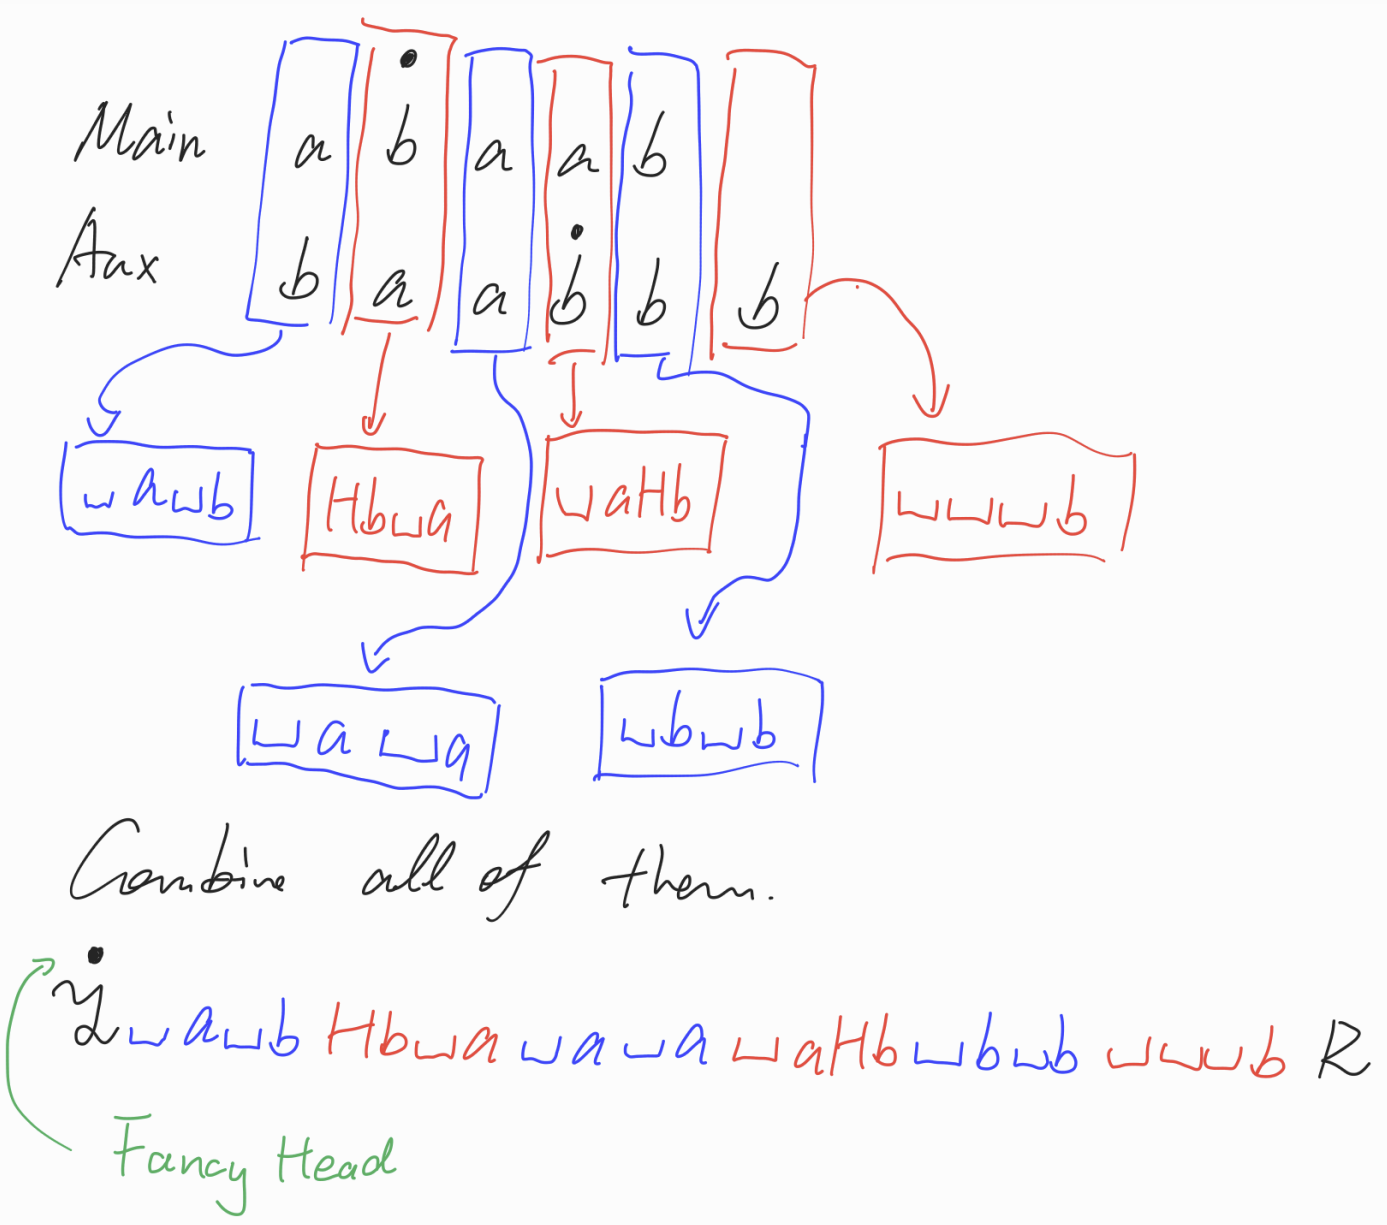 Main a b a a b
Aux b a a b b b
␣a␣b Hb␣a ␣aHb ␣␣␣b
␣a␣a ␣b␣b
Combine all of them.
L␣a␣bHb␣a␣a␣a␣aHb␣b␣b␣␣␣bR
Fancy Head